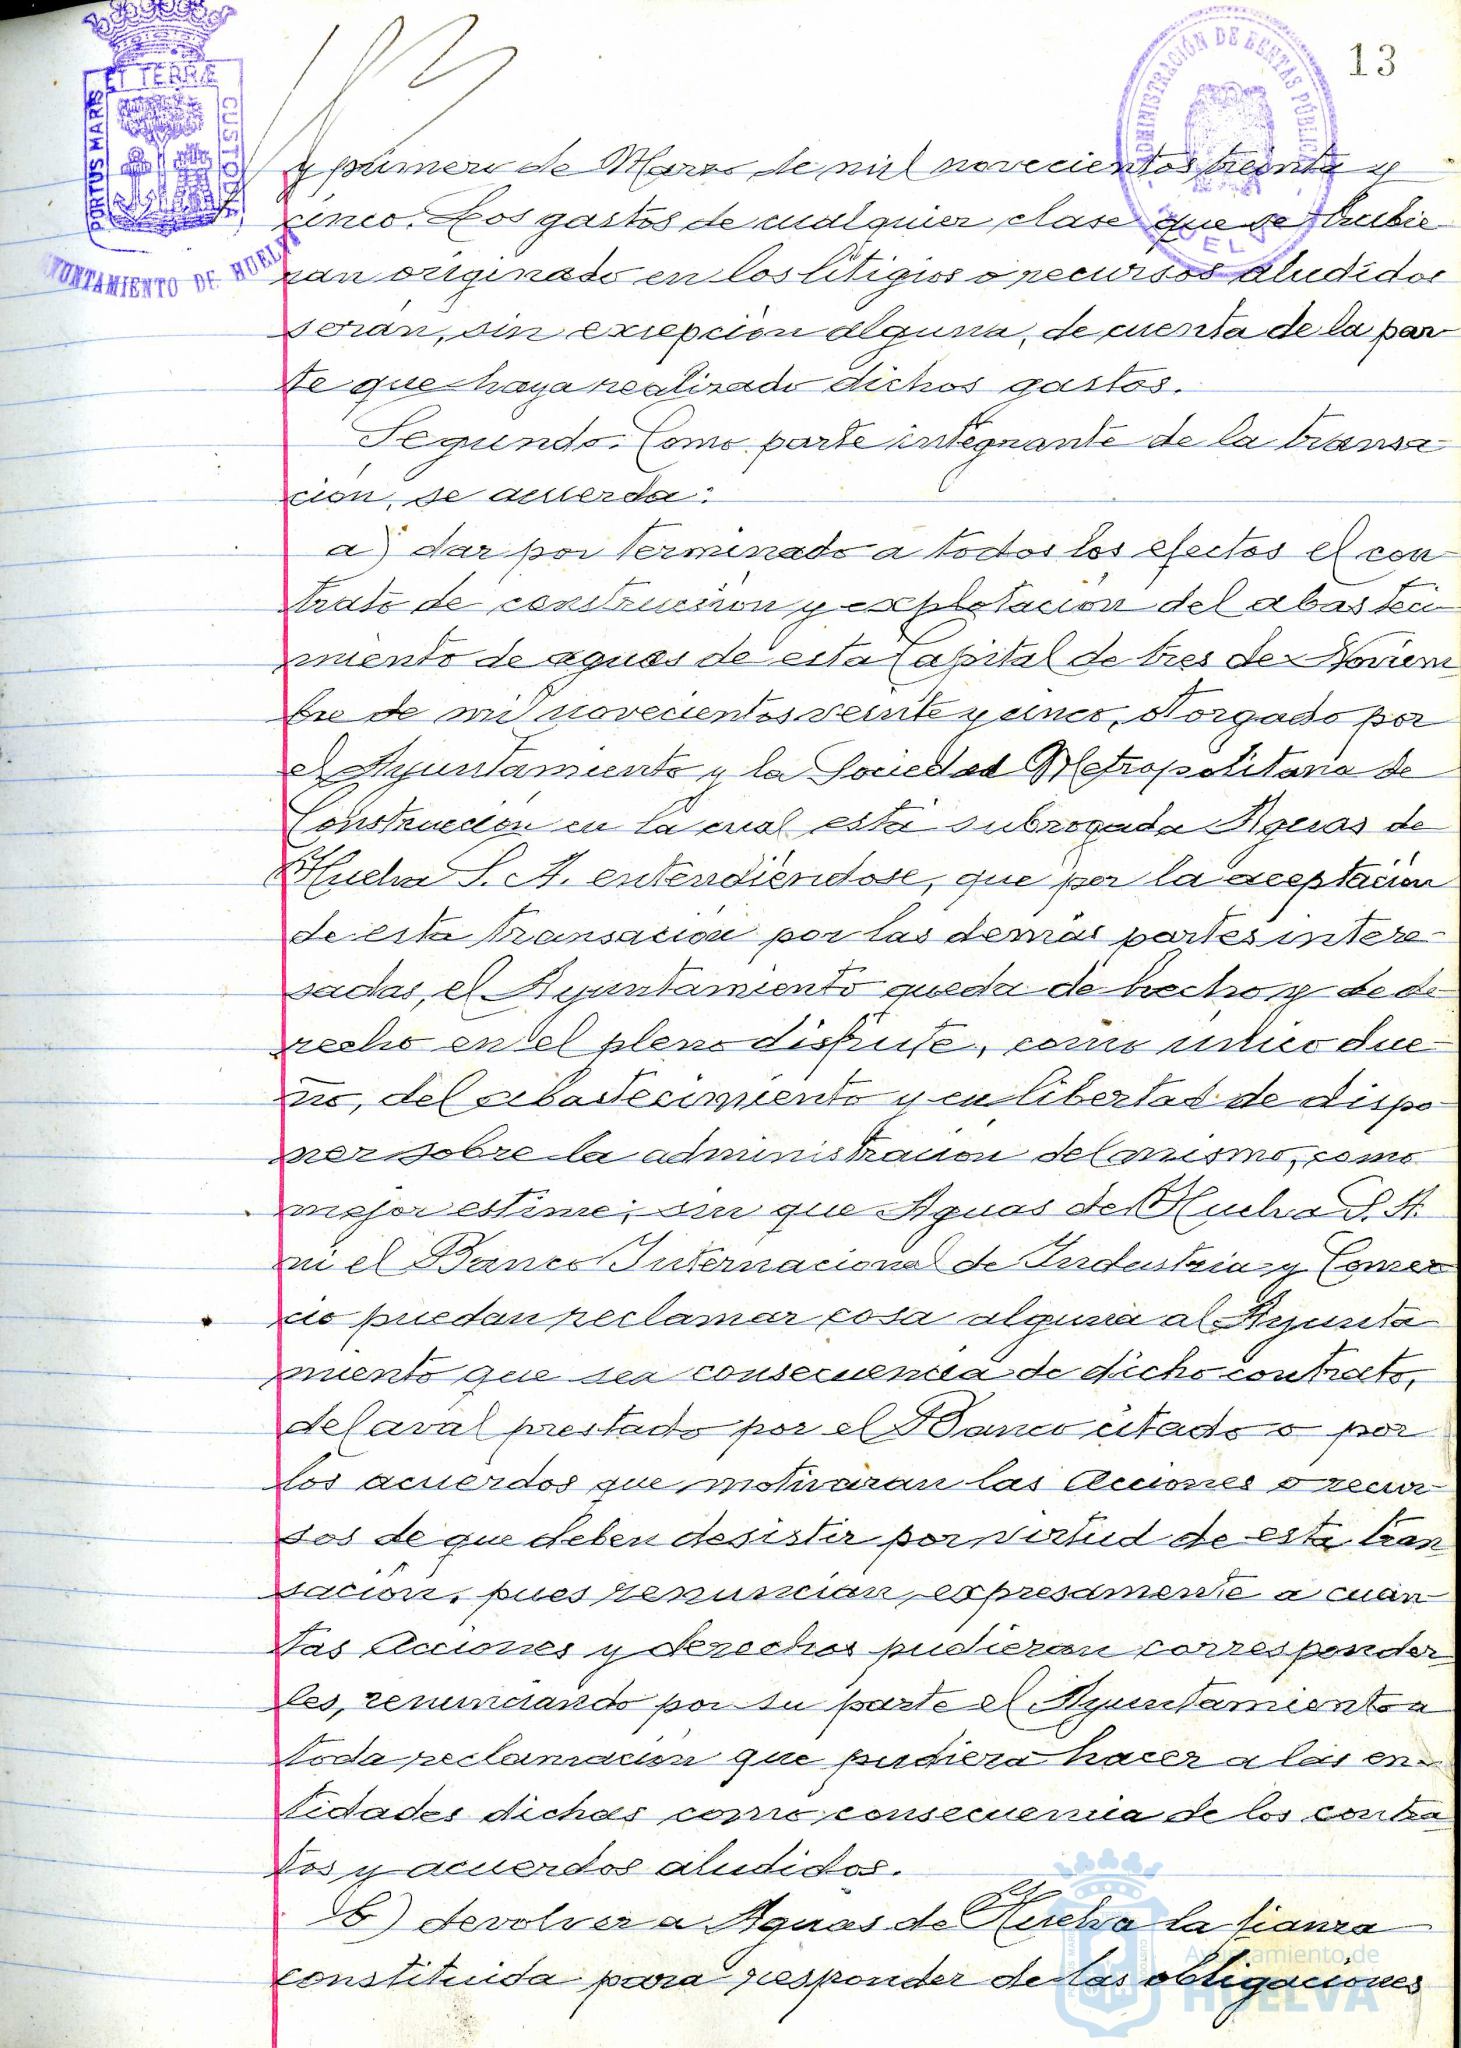 13
PORTUS MARIS ET TERRÆ CUSTODIA
AYUNTAMIENTO DE HUELVA
ADMINISTRACIÓN DE RENTAS PÚBLICAS
HUELVA
y primero de Marzo de mil novecientos treinta y
cinco. Los gastos de cualquier clase que se hubie
ran originado en los litigios o recursos aludidos
serán, sin excepción alguna, de cuenta de la par
te que haya realizado dichos gastos.
Segundo. Como parte integrante de la transa
ción, se acuerda:
a) dar por terminado a todos los efectos el con
trato de construcción y explotación del abasteci
miento de aguas de esta Capital de tres de Noviem
bre de mil novecientos veinte y cinco, otorgado por
el Ayuntamiento y la Sociedad Metropolitana de
Construcción en la cual está subrogada Aguas de
Huelva S. A. entendiéndose, que por la aceptación
de esta transación por las demás partes intere-
sadas, el Ayuntamiento queda de hecho y de de
recho en el pleno disfrute, como único due-
ño, del abastecimiento y en libertad de dispo
ner sobre la administración del mismo, como
mejor estime; sin que Aguas de Huelva S. A.
ni el Banco Internacional de Industria y Comer
cio puedan reclamar cosa alguna al Ayunta
miento que sea consecuencia de dicho contrato,
del aval prestado por el Banco citado o por
los acuerdos que motivaran las acciones o recur
sos de que deben desistir por virtud de esta tran
sación, pues renuncian expresamente a cuan
tas acciones y derechos pudieran corresponder
les, renunciando por su parte el Ayuntamiento a
toda reclamación que pudiera hacer a las en-
tidades dichas como consecuencia de los contra
tos y acuerdos aludidos.
b) devolver a Aguas de Huelva la fianza
constituida para responder de las obligaciones
Ayuntamiento de
HUELVA